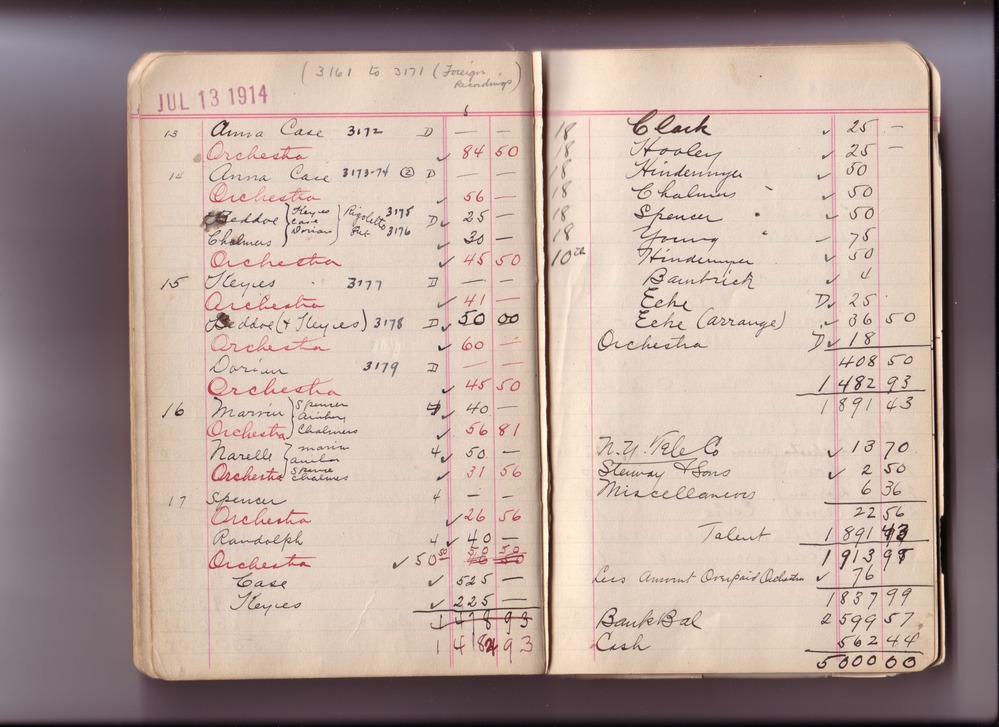 (3161 to 3171 (Foreign
Recordings)
JUL 13 1914
$
13 Anna Case 3172 D — —
Orchestra ✓ 84 50
14 Anna Case 3173-74 ② D — —
Orchestra ✓ 56 —
Beddoe } Keyes Case Dorian } Rigoletto 3175 D ✓ 25 —
Chalmers Pat 3176 ✓ 30 —
Orchestra ✓ 45 50
15 Keyes 3177 D — —
Orchestra ✓ 41 —
Beddoe (+ Keyes) 3178 D ✓ 50 00
Orchestra ✓ 60 —
Dorian 3179 D — —
Orchestra ✓ 45 50
16 Marvin } Spencer 4 ✓ 40 —
Orchestra } Chalmers ✓ 56 81
Narelle } marvin 4 ✓ 50 —
Orchestra Spencer Chalmers ✓ 31 56
17 Spencer 4 — —
Orchestra ✓ 26 56
Randolph 4 ✓ 40 —
Orchestra ✓ 50 50
Case ✓ 525 —
Keyes ✓ 225 —
1 478 93
1 482 93
18 Clark ✓ 25 —
18 Hooley ✓ 25 —
18 Hindermyer ✓ 50
18 Chalmers ✓ 50
18 Spencer ✓ 50
18 Young ✓ 75
10th Hindermyer ✓ 50
Bambrick ✓ 4
Ecke D ✓ 25
Ecke (arrange) ✓ 36 50
Orchestra D ✓ 18
408 50
1 482 93
1 891 43
N.Y. Tele Co ✓ 13 70
Stenway & Sons ✓ 2 50
Miscellaneous 6 36
22 56
Talent 1 891 43
1 913 99
Less Amount Overpaid Orchestra ✓ 76
1837 99
Bank Bal 2 599 57
Cash 562 44
5000 00